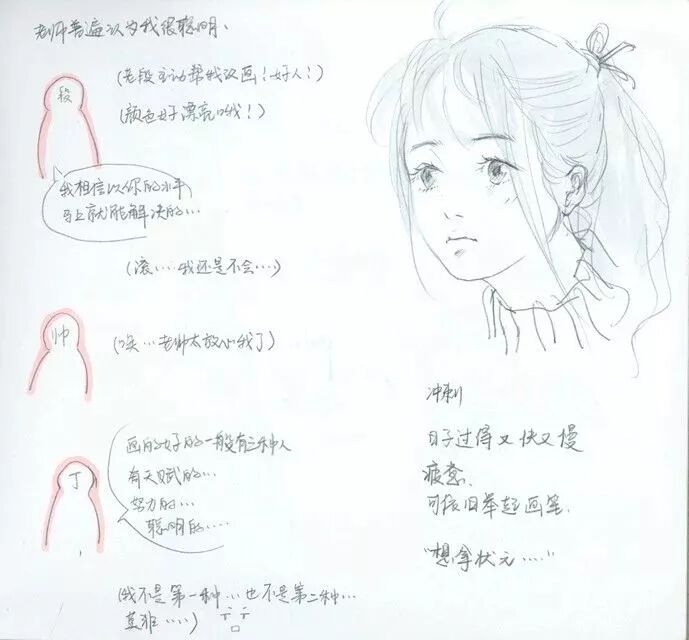 老师普遍认为我很聪明、
段
(老段主动帮我改画！好人！)
(颜色好漂亮哦！)
我相信以你的水平
马上就能解决的...
(滚....我还是不会....)
帅
(唉...老帅太放心我了)
丁
画的好的一般有三种人
有天赋的...
努力的...
聪明的....
(我不是第一种...也不是第二种...
莫非....)
冲刺
日子过得又快又慢
疲惫、
可依旧举起画笔.
"想拿状元....."